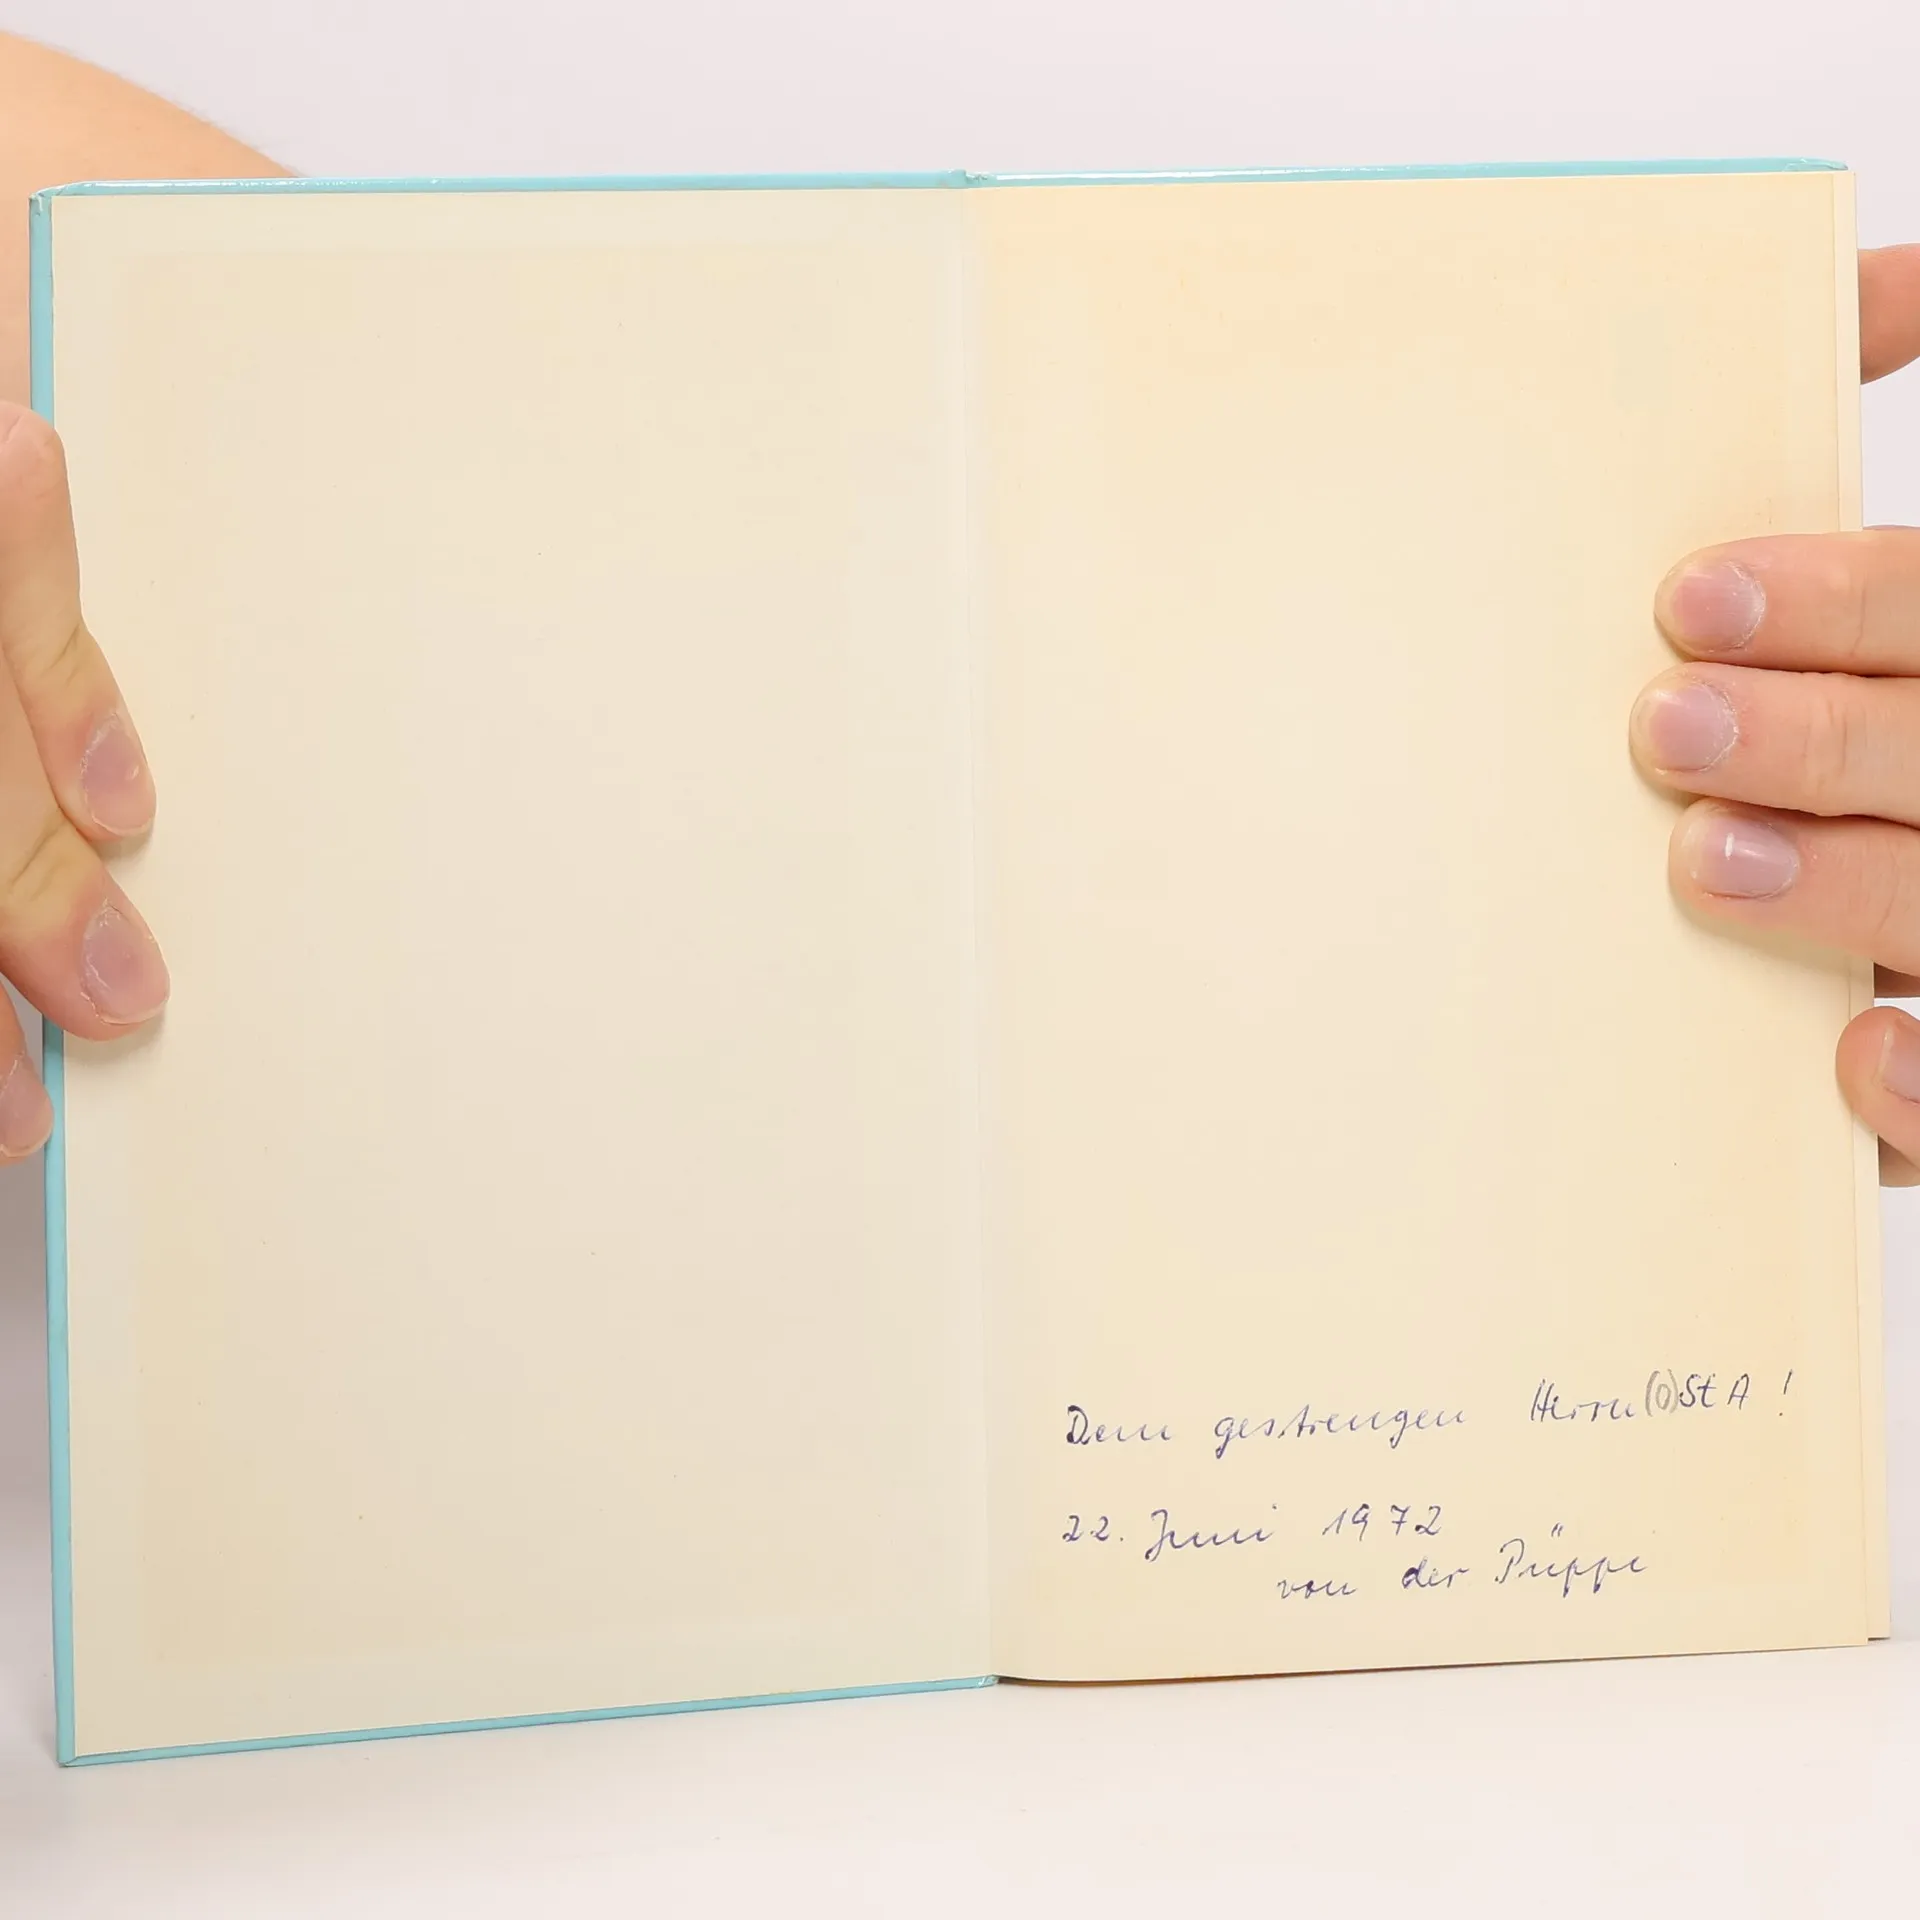 Dem gestrengen Herrn (O)StA!
22. Juni 1972
von der Püppi